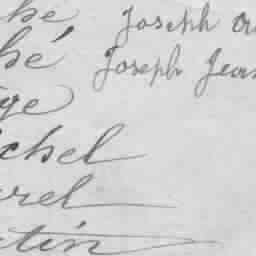 bé Joseph
hé Joseph Jean
ge
chel
rel
tin